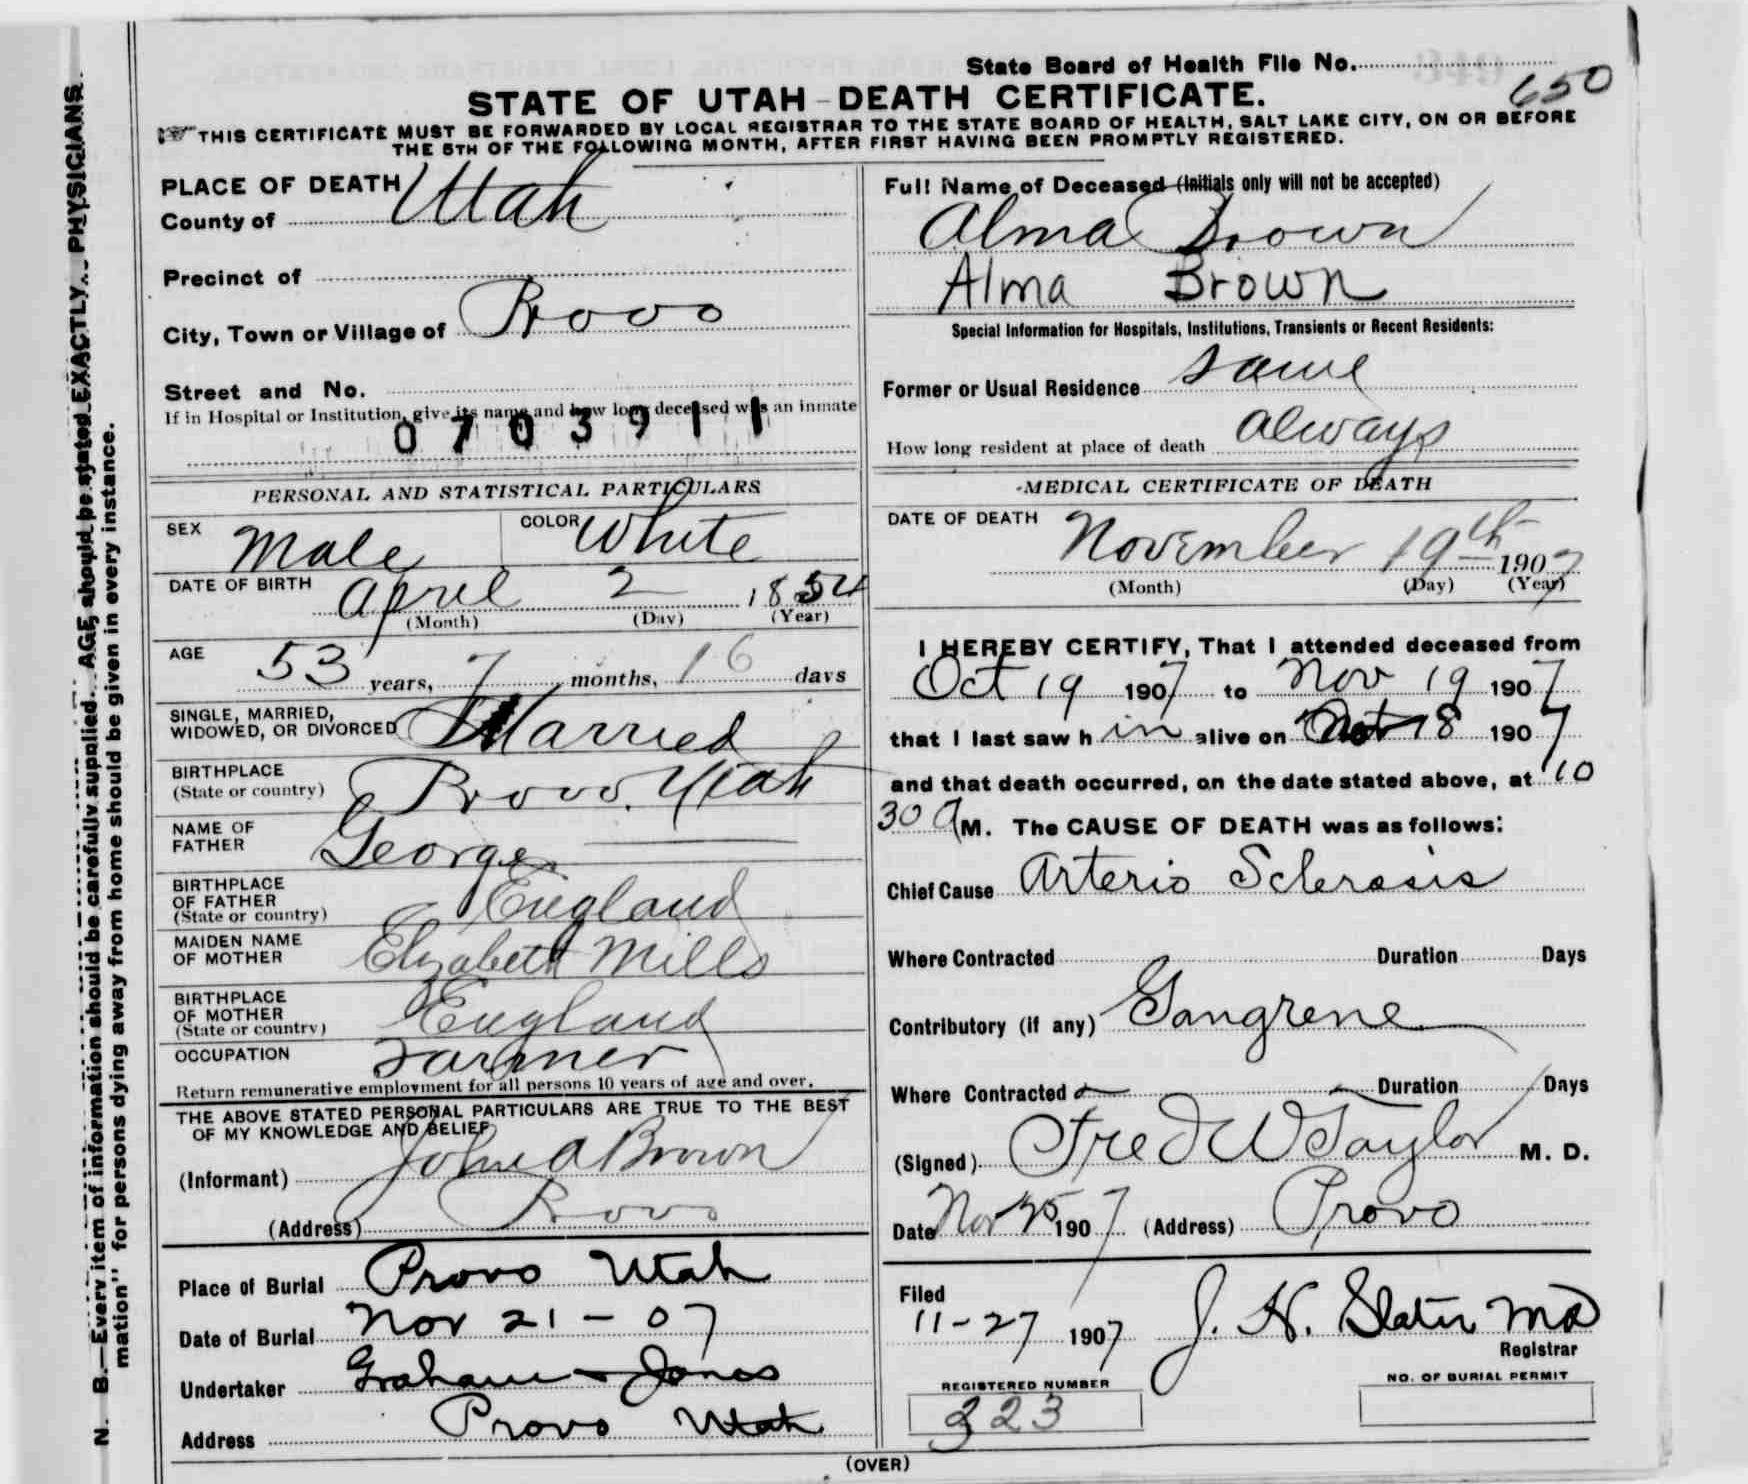 State Board of Health File No.
650
STATE OF UTAH - DEATH CERTIFICATE.
THIS CERTIFICATE MUST BE FORWARDED BY LOCAL REGISTRAR TO THE STATE BOARD OF HEALTH, SALT LAKE CITY, ON OR BEFORE
THE 5TH OF THE FOLLOWING MONTH, AFTER FIRST HAVING BEEN PROMPTLY REGISTERED.
PLACE OF DEATH
County of Utah
Precinct of
City, Town or Village of Provo
Street and No.
If in Hospital or Institution, give its name and how long deceased was an inmate
0703911
PERSONAL AND STATISTICAL PARTICULARS
SEX Male COLOR White
DATE OF BIRTH April 2 1854
(Month) (Day) (Year)
AGE 53 years, 7 months, 16 days
SINGLE, MARRIED,
WIDOWED, OR DIVORCED Married
BIRTHPLACE
(State or country) Provo, Utah
NAME OF
FATHER George
BIRTHPLACE
OF FATHER
(State or country) England
MAIDEN NAME
OF MOTHER Elizabeth Mills
BIRTHPLACE
OF MOTHER
(State or country) England
OCCUPATION Farmer
Return remunerative employment for all persons 10 years of age and over.
THE ABOVE STATED PERSONAL PARTICULARS ARE TRUE TO THE BEST
OF MY KNOWLEDGE AND BELIEF
(Informant) John A Brown
(Address) Provo
Place of Burial Provo Utah
Date of Burial Nov 21 - 07
Undertaker Graham & Jones
Address Provo Utah
Full Name of Deceased (Initials only will not be accepted)
Alma Brown
Alma Brown
Special Information for Hospitals, Institutions, Transients or Recent Residents:
Former or Usual Residence same
How long resident at place of death always
MEDICAL CERTIFICATE OF DEATH
DATE OF DEATH November 19th 1907
(Month) (Day) (Year)
I HEREBY CERTIFY, That I attended deceased from
Oct 19 1907 to Nov 19 1907
that I last saw h im alive on 18 1907
and that death occurred, on the date stated above, at 10
30 A M. The CAUSE OF DEATH was as follows:
Chief Cause Arterio Sclerosis
Where Contracted Duration Days
Contributory (if any) Gangrene
Where Contracted Duration Days
(Signed) Fred W Taylor M. D.
Date Nov 25 1907 (Address) Provo
Filed
11-27 1907 J. H. Slater MD
Registrar
REGISTERED NUMBER
323
NO. OF BURIAL PERMIT
(OVER)
N. B.—Every item of information should be carefully supplied. AGE should be stated EXACTLY. PHYSICIANS
mation" for persons dying away from home should be given in every instance.